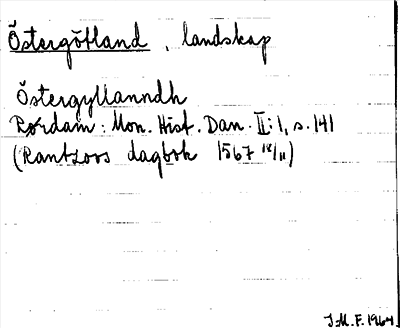 Östergötland, landskap
Östergyllanndh
Rørdam: Mon. Hist. Dan. II:1, s. 141
(Rantzovs dagbok 1567 18/11)
J.M.F. 1964